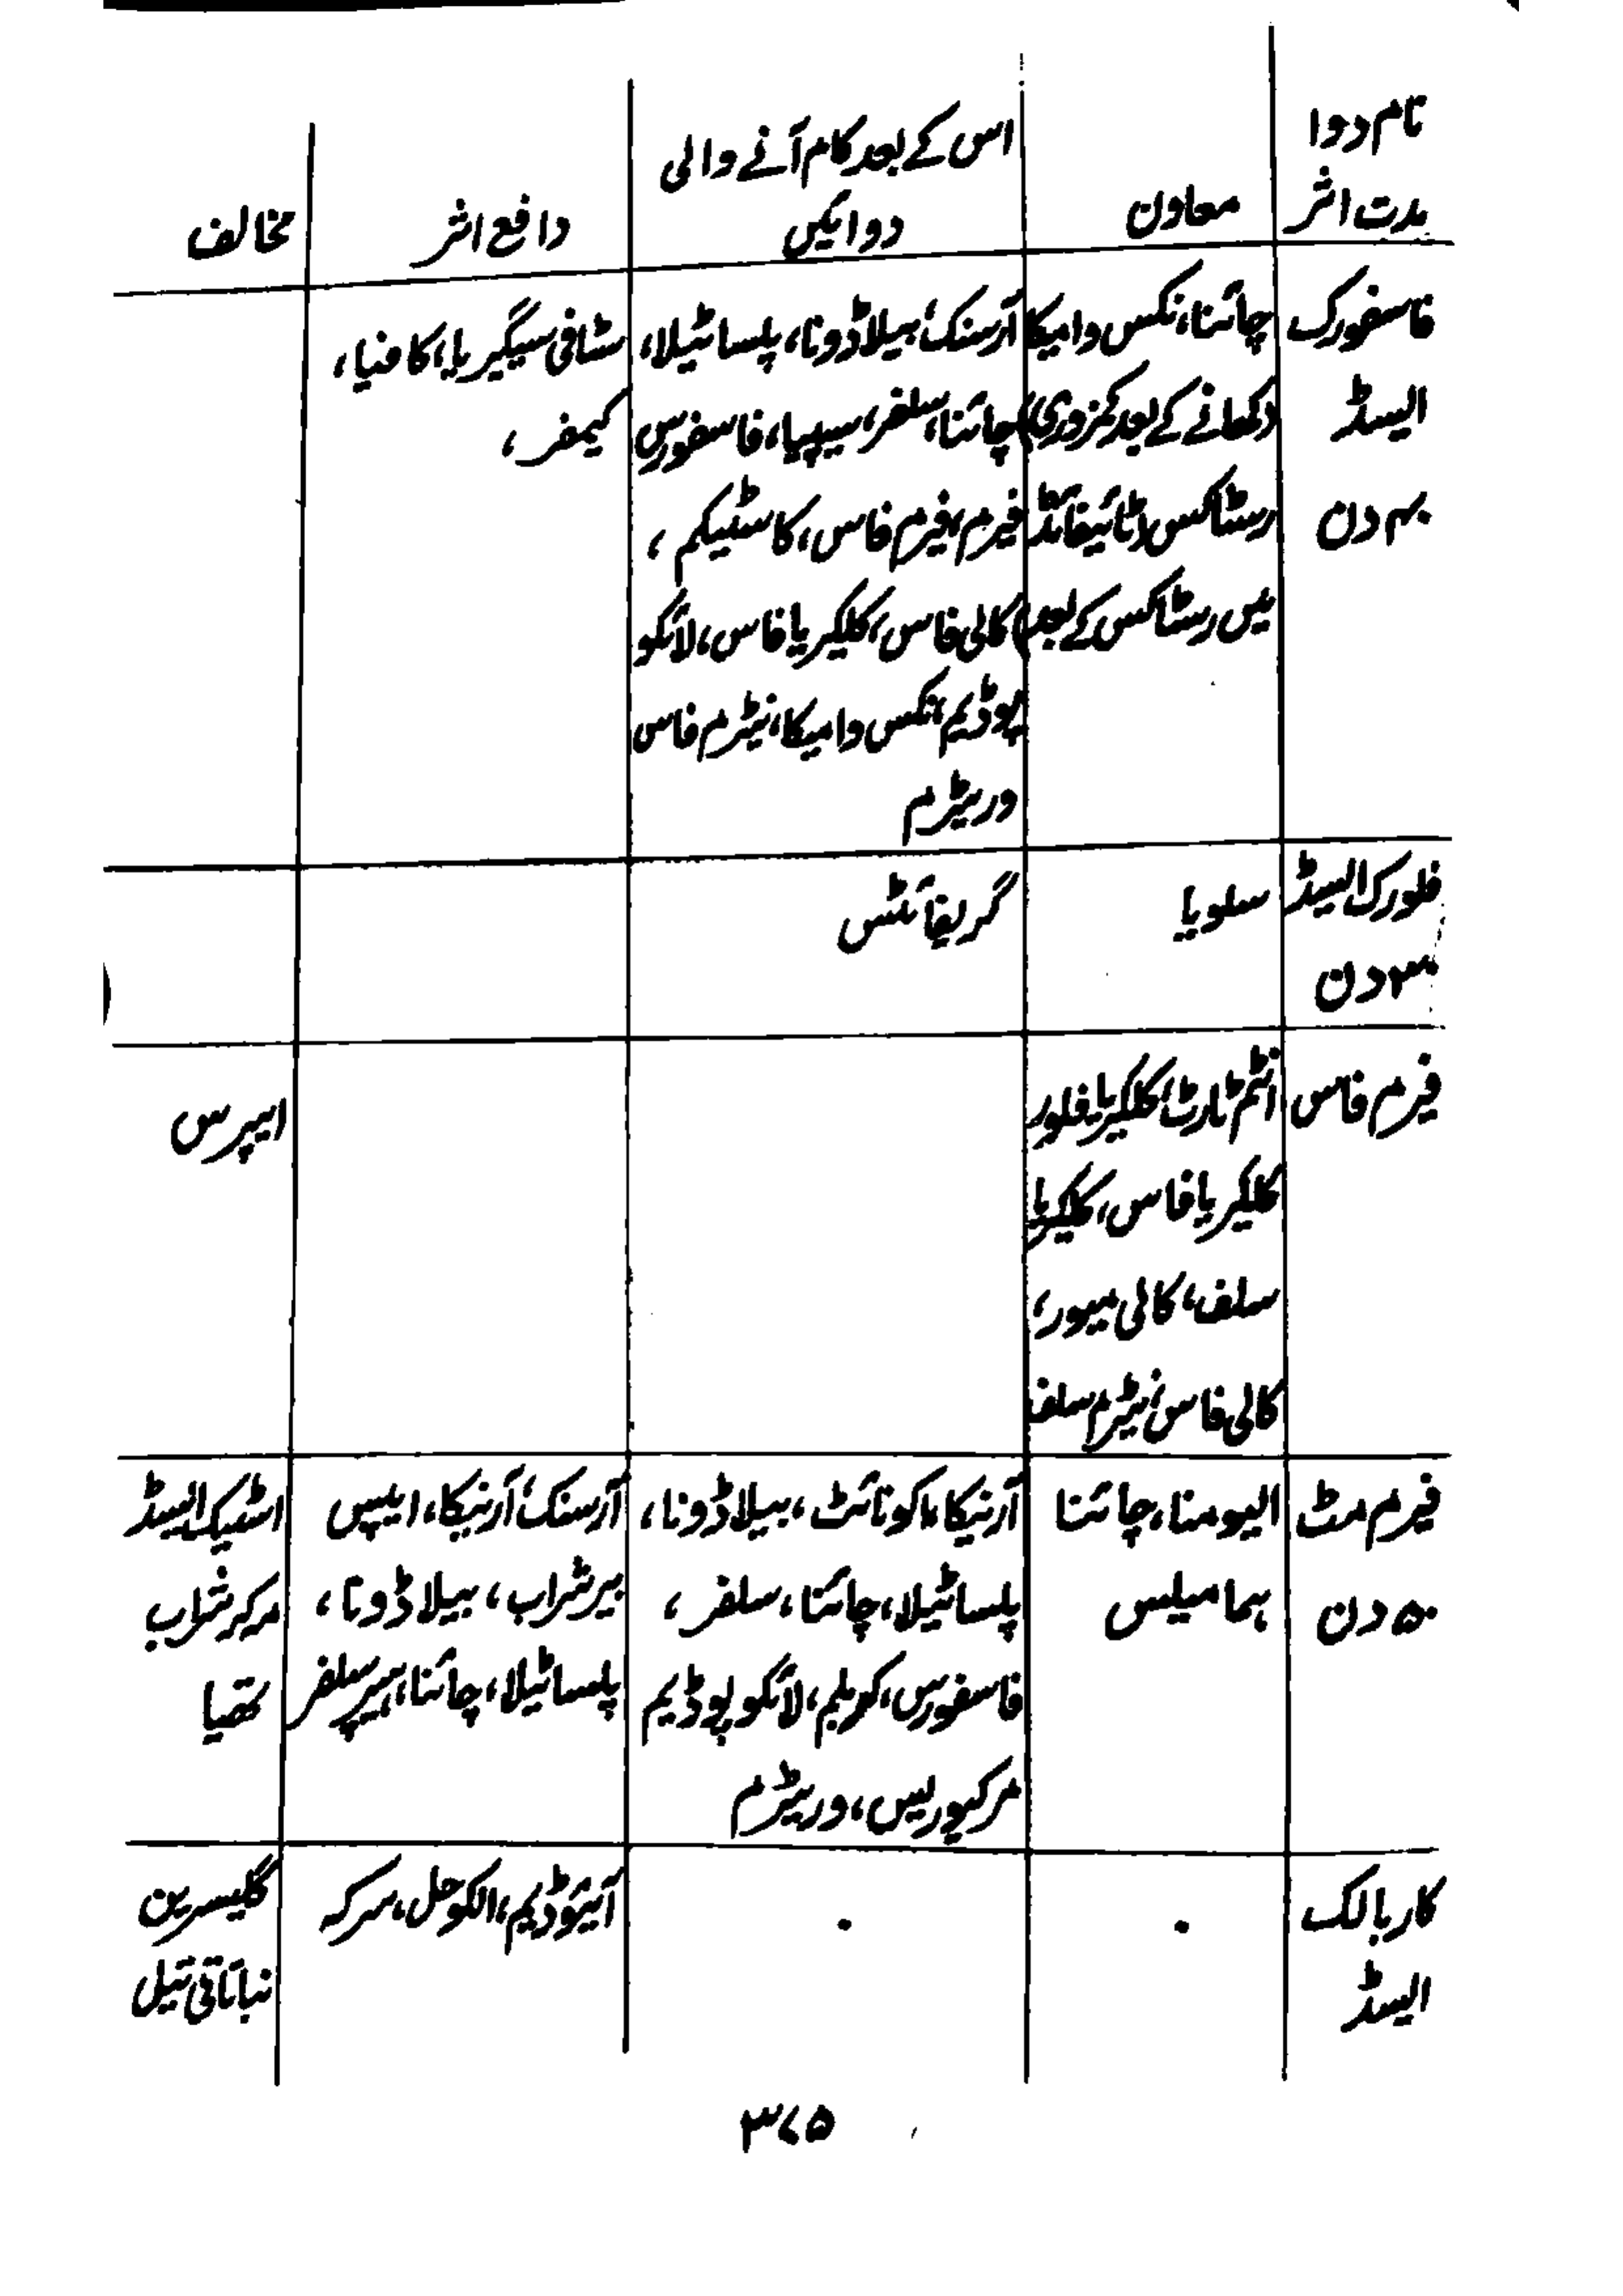 نام دوا
مدت اثر
معاون
اس کے بعد کام آنے والی
دوائیں
دافع اثر
مخالف
فاسفورک
ایسڈ
۴۰ دن
چائنا، نکس وامیکا
(کھانے کے بعد کمزوری)
رسٹاکس (ٹائیفائڈ
میں رسٹاکس کے بعد)
آرسنک، بیلاڈونا، پلساٹیلا،
چائنا، سلفر، سیپیا، فاسفورس
فیرم، فیرم فاس، کاسٹیکم،
کالی فاس، کلکیریا فاس، لائکو
پوڈیم، نکس وامیکا، نیٹرم فاس
وریٹرم
سٹافی سیگیریا، کافیا،
کیمفر،
فلورک ایسڈ
۳۰ دن
سلویا
گریفائٹس
فیرم فاس
انٹم ٹارٹ، کلکیریا فلور
کلکیریا فاس، کلکیریا
سلف، کالی میور،
کالی فاس، نیٹرم سلف
ایپرس
فیرم مٹ
۵۰ دن
الیومنا، چائنا
ہما میلس
آرنیکا، اکونائٹ، بیلاڈونا،
پلساٹیلا، چائنا، سلفر،
فاسفورس، کوریلم، لائکو پوڈیم
مرکیوریس، وریٹرم
آرسنک، آرنیکا، ایپس
بیر شراب، بیلاڈونا،
پلساٹیلا، چائنا، ہیپر سلفر
اسٹیک ایسڈ
سرکہ شراب
تھیا
کاربالک
ایسڈ
۰
۰
آئیوڈیم، الکوحل، سرکہ
گلیسرین
نباتاتی تیل
۳۷۵